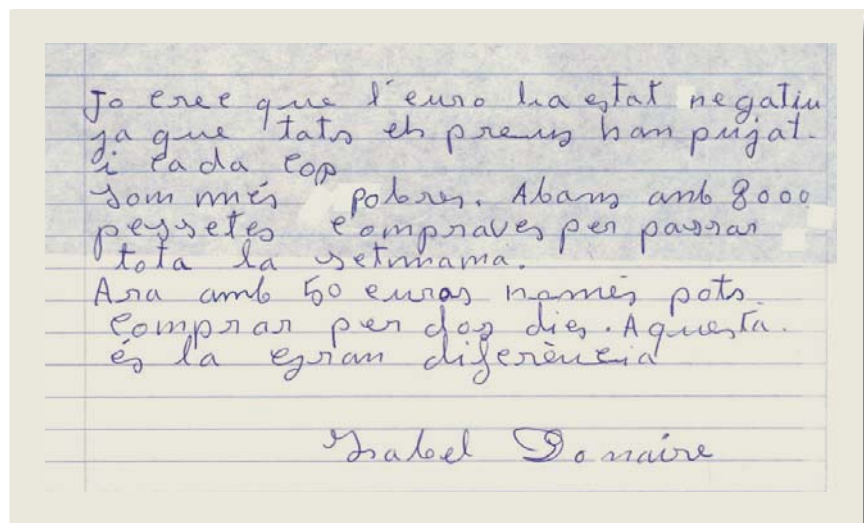 Jo crec que l'euro ha estat negatiu
ja que tots els preus han pujat.
i cada cop
som més pobres. Abans amb 8000
pessetes compraves per passar
tota la setmana.
Ara amb 50 euros només pots
comprar per dos dies. Aquesta.
és la gran diferència
Isabel Donaire